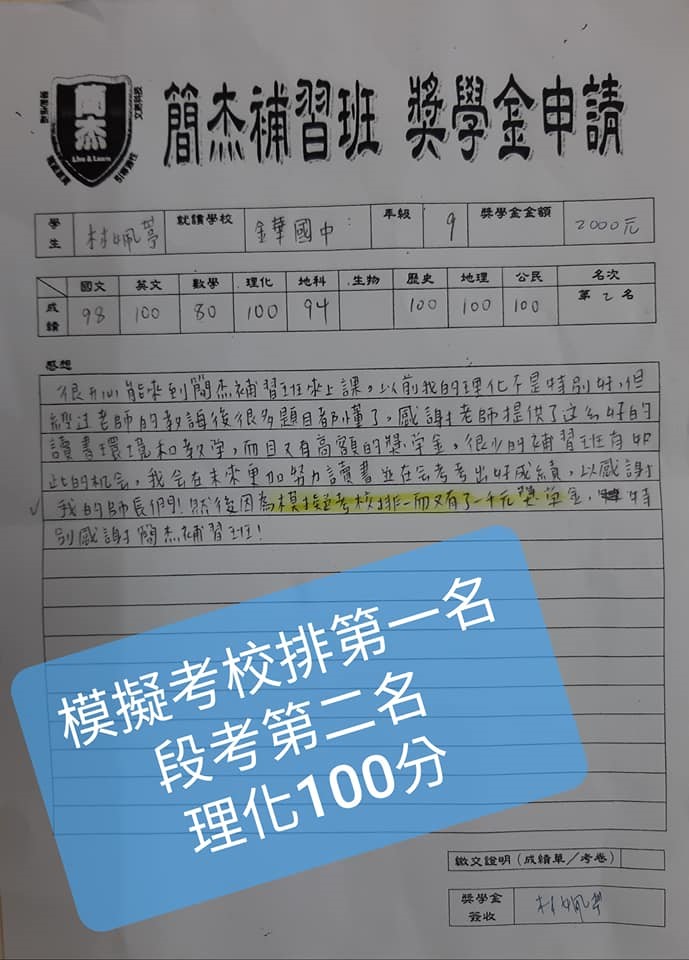 簡杰
Live & Learn
簡杰補習班 獎學金申請
學生 林姵葶 就讀學校 金華國中 年級 9 獎學金金額 2000元
國文 英文 數學 理化 地科 生物 歷史 地理 公民 名次
成績 98 100 80 100 94 100 100 100 第2名
感想
很開心能來到簡杰補習班來上課,以前我的理化不是特別好,但
經过老師的教誨後很多題目都懂了,感謝老師提供了这么好的
讀書環境和教学,而且又有高額的獎学金,很少的補習班有如
此的机会,我会在未來更加努力讀書並在会考考出好成績,以感謝
我的師長們!然後因為模擬考校排一而又有了一千元獎學金,特
別感謝簡杰補習班!
模擬考校排第一名
段考第二名
理化100分
繳交證明(成績單/考卷)
獎學金
簽收 林姵葶